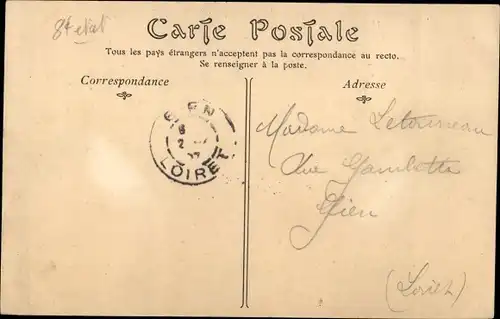 Carte Postale
Tous les pays étrangers n'acceptent pas la correspondance au recto.
Se renseigner à la poste.
Correspondance
Adresse
GIEN
LOIRET
Madame Letourneau
Rue Gambetta
Gien
(Loiret)